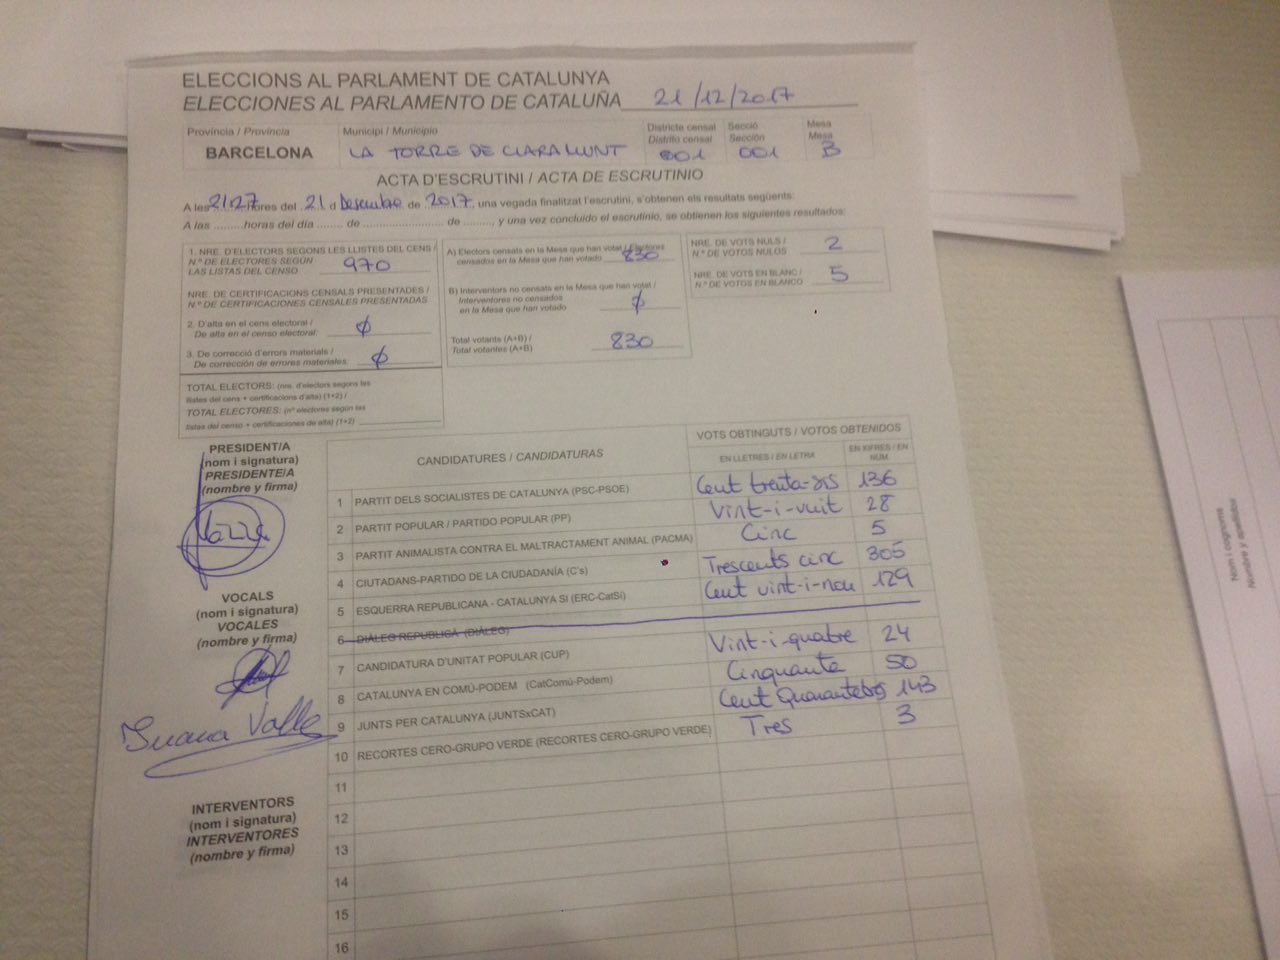 ELECCIONS AL PARLAMENT DE CATALUNYA
ELECCIONES AL PARLAMENTO DE CATALUÑA 21/12/2017
Província / Provincia
BARCELONA
Municipi / Municipio
LA TORRE DE CLARAMUNT
Districte censal
Distrito censal
001
Secció
Sección
001
Mesa
Mesa
B
ACTA D'ESCRUTINI / ACTA DE ESCRUTINIO
A les 21:27 hores del 21 d Desembre de 2017, una vegada finalitzat l'escrutini, s'obtenen els resultats següents:
A las .........horas del día ....... de .......................... de ........, y una vez concluido el escrutinio, se obtienen los siguientes resultados:
1. NRE. D'ELECTORS SEGONS LES LLISTES DEL CENS /
N.º DE ELECTORES SEGÚN
LAS LISTAS DEL CENSO 970
NRE. DE CERTIFICACIONS CENSALS PRESENTADES /
N.º DE CERTIFICACIONES CENSALES PRESENTADAS
2. D'alta en el cens electoral /
De alta en el censo electoral: Ø
3. De correcció d'errors materials /
De corrección de errores materiales: Ø
TOTAL ELECTORS: (nre. d'electors segons les
llistes del cens + certificacions d'alta) (1+2) /
TOTAL ELECTORES: (nº electores según las
listas del censo + certificaciones de alta) (1+2)
A) Electors censats en la Mesa que han votat / Electores
censados en la Mesa que han votado 830
B) Interventors no censats en la Mesa que han votat /
Interventores no censados
en la Mesa que han votado Ø
Total votants (A+B) /
Total votantes (A+B) 830
NRE. DE VOTS NULS /
N.º DE VOTOS NULOS 2
NRE. DE VOTS EN BLANC /
N.º DE VOTOS EN BLANCO 5
PRESIDENT/A
(nom i signatura)
PRESIDENTE/A
(nombre y firma)
VOCALS
(nom i signatura)
VOCALES
(nombre y firma)
Juana Valle
INTERVENTORS
(nom i signatura)
INTERVENTORES
(nombre y firma)
CANDIDATURES / CANDIDATURAS
VOTS OBTINGUTS / VOTOS OBTENIDOS
EN LLETRES / EN LETRA
EN XIFRES / EN NÚM.
1 PARTIT DELS SOCIALISTES DE CATALUNYA (PSC-PSOE) Cent trenta-sis 136
2 PARTIT POPULAR / PARTIDO POPULAR (PP) Vint-i-vuit 28
3 PARTIT ANIMALISTA CONTRA EL MALTRACTAMENT ANIMAL (PACMA) Cinc 5
4 CIUTADANS-PARTIDO DE LA CIUDADANÍA (C's) Trescents cinc 305
5 ESQUERRA REPUBLICANA - CATALUNYA SÍ (ERC-CatSí) Cent vint-i-nou 129
6 DIÀLEG REPUBLICÀ (DIÀLEG)
7 CANDIDATURA D'UNITAT POPULAR (CUP) Vint-i-quatre 24
8 CATALUNYA EN COMÚ-PODEM (CatComú-Podem) Cinquanta 50
9 JUNTS PER CATALUNYA (JUNTSxCAT) Cent Quarantetres 143
10 RECORTES CERO-GRUPO VERDE (RECORTES CERO-GRUPO VERDE) Tres 3
11
12
13
14
15
16
Nom i cognoms
Nombre y apellidos